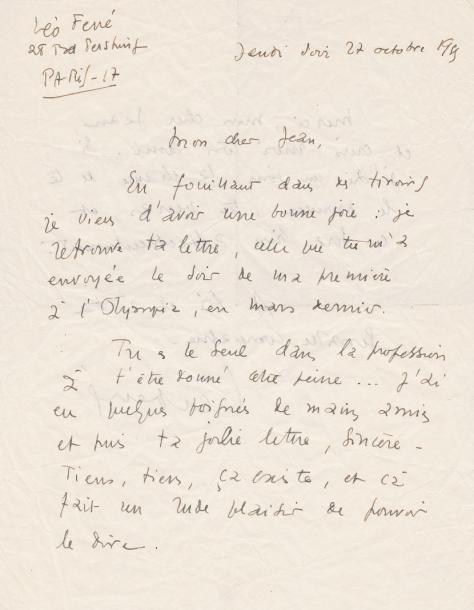 Léo Ferré
28 Bd Pershing
PARIS-17
Jeudi soir 27 octobre 1955
Mon cher Jean,
En fouillant dans mes tiroirs
je viens d'avoir une bonne joie : je
retrouve ta lettre, celle que tu m'as
envoyée le soir de ma première
à l'Olympia, en mars dernier.
Tu es le seul dans la profession
à t'être donné cette peine... J'ai
eu quelques poignées de mains amies
et puis ta jolie lettre, sincère -
Tiens, tiens, ça existe, et ça
fait un rude plaisir de pouvoir
le dire.